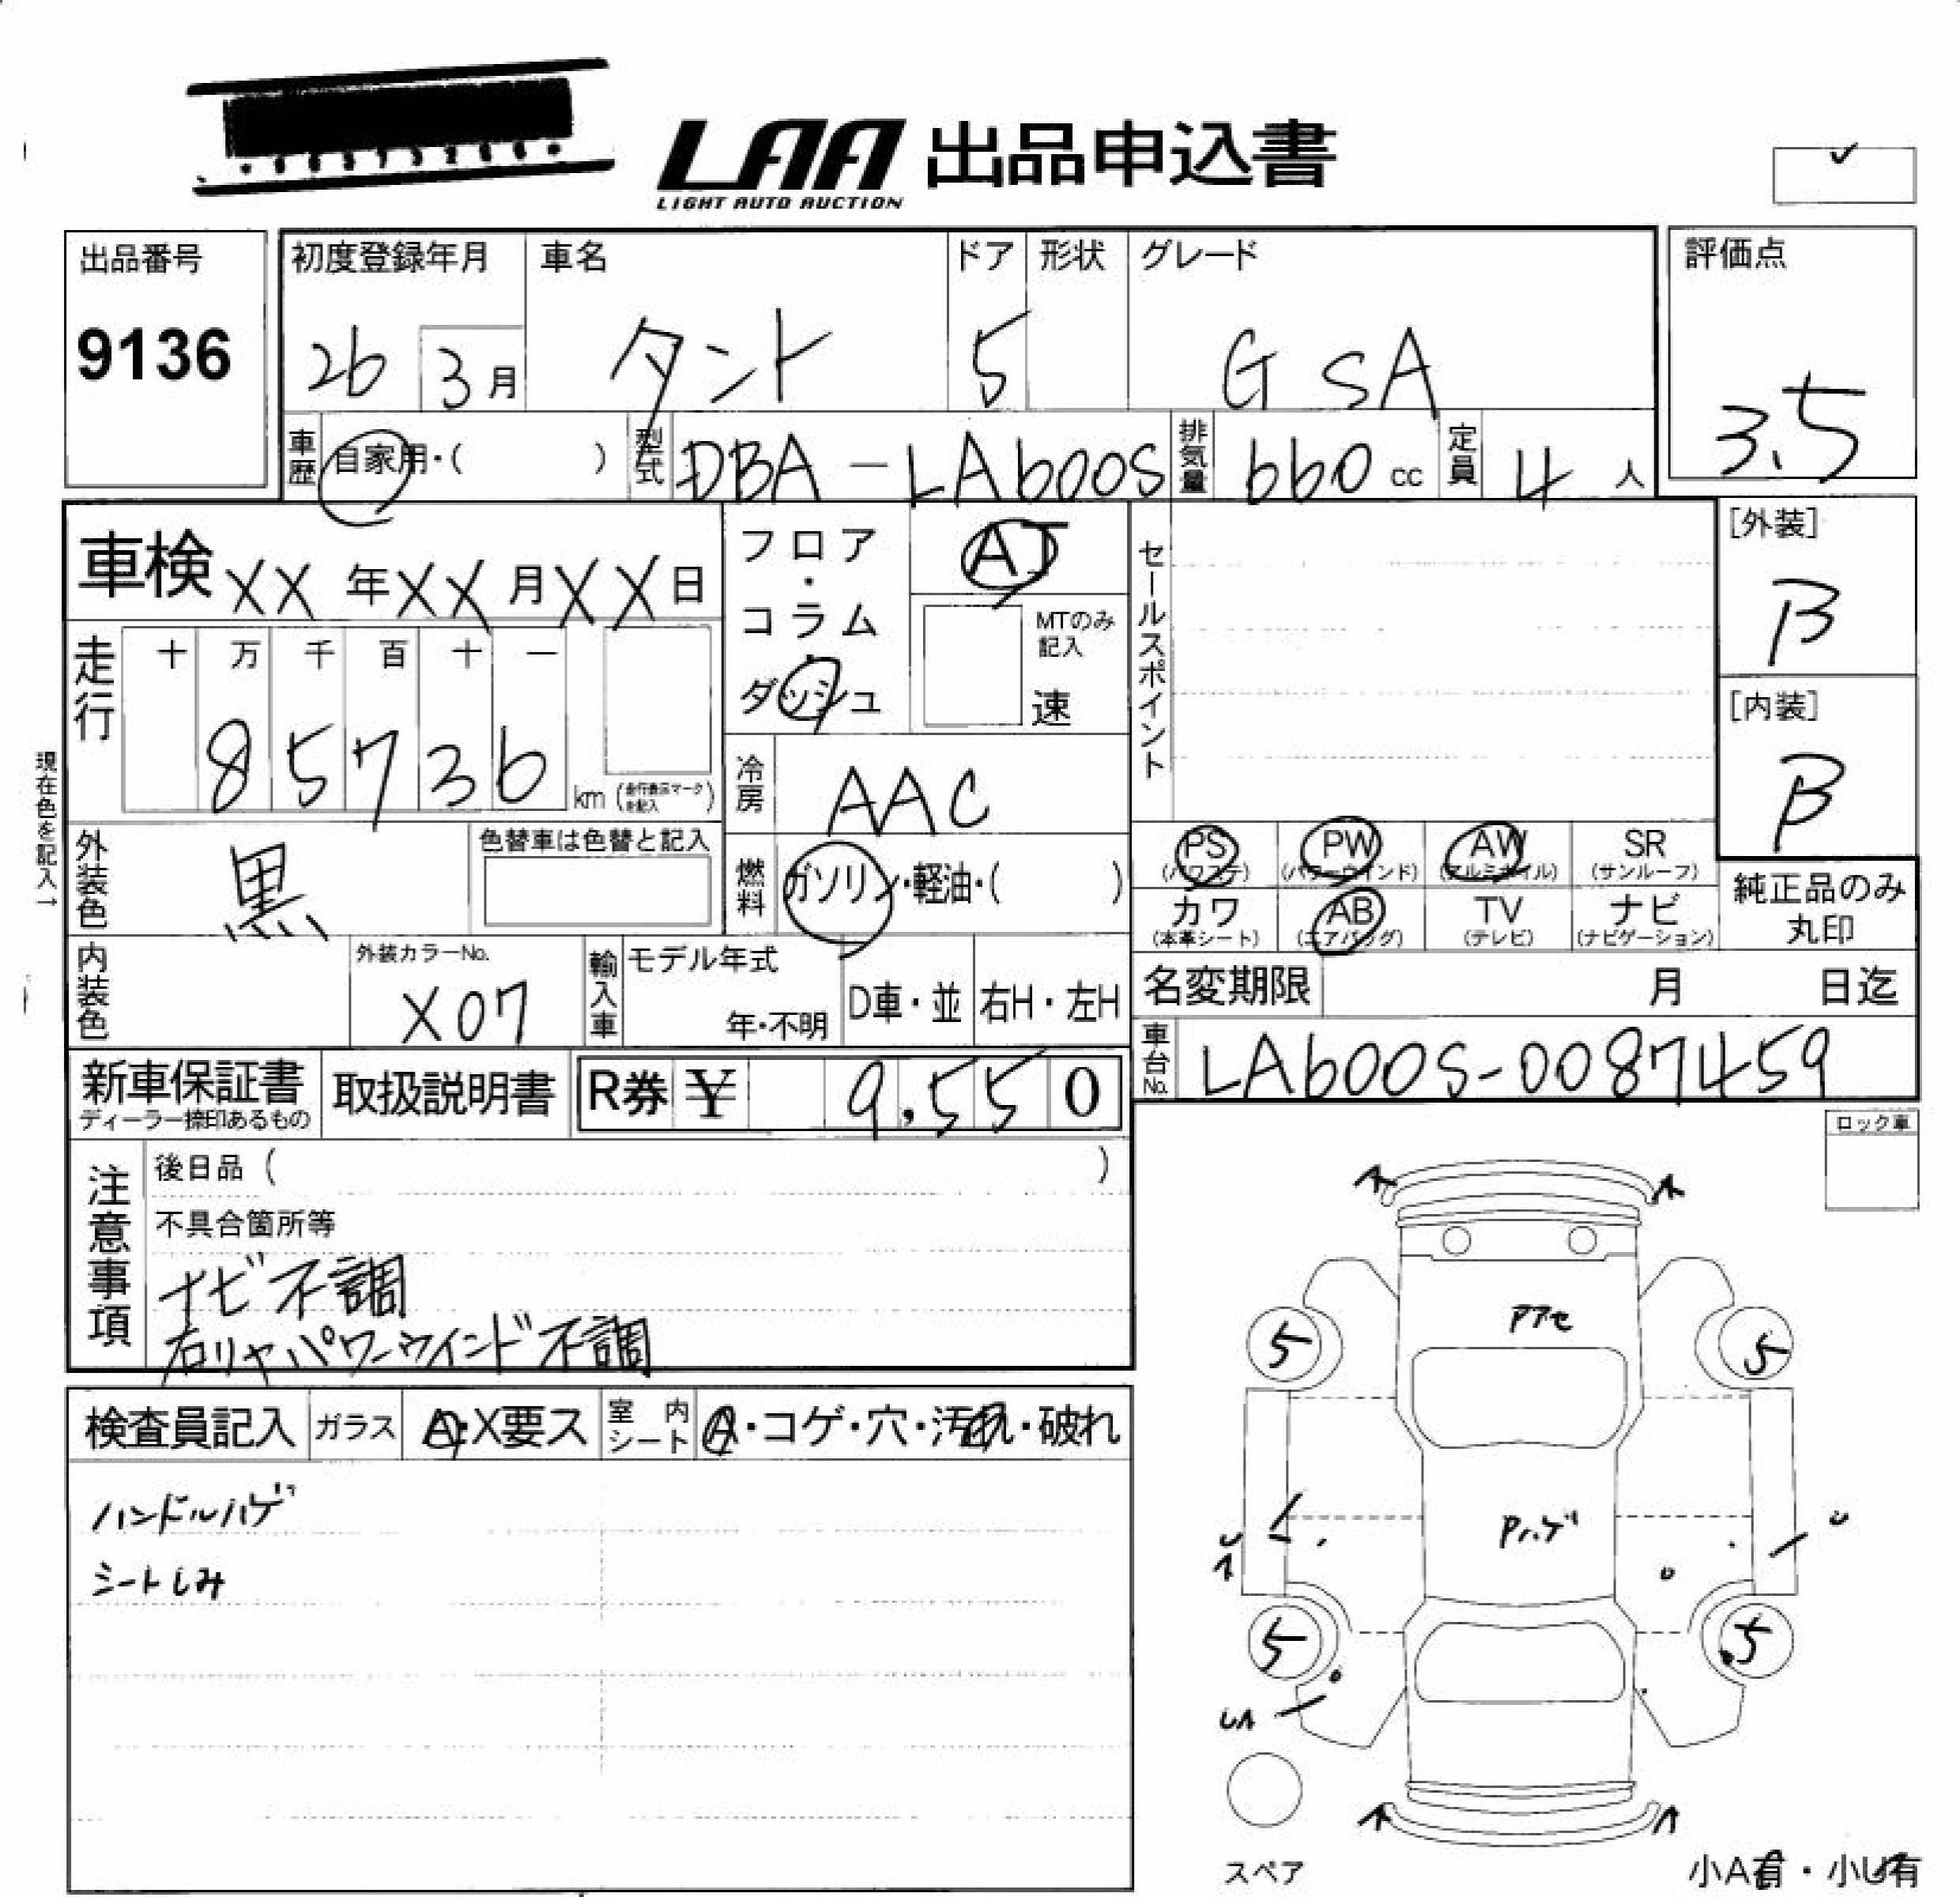 LAA 出品申込書
LIGHT AUTO AUCTION
出品番号
9136
初度登録年月
26 3月
車名
タント
ドア
5
形状
グレード
G SA
評価点
3.5
車歴
自家用・( )
型式
DBA-LA600S
排気量
660 cc
定員
4 人
車検 XX 年 XX 月 XX 日
走行
十 万 千 百 十 一
85736 km (走行表示マークを記入)
現在色を記入→
外装色
黒
色替車は色替と記入
内装色
外装カラーNo.
X07
フロア・コラム・ダッシュ
AT
MTのみ記入
速
冷房
AAC
燃料
ガソリン・軽油・( )
輸入車
モデル年式
年・不明
D車・並
右H・左H
セールスポイント
[外装]
B
[内装]
B
PS (パワステ)
PW (パワーウインド)
AW (アルミホイル)
SR (サンルーフ)
カワ (本革シート)
AB (エアバッグ)
TV (テレビ)
ナビ (ナビゲーション)
純正品のみ丸印
名変期限 月 日迄
車台No.
LA600S-0087459
新車保証書
ディーラー捺印あるもの
取扱説明書
R券 ¥ 9,550
注意事項
後日品 ( )
不具合箇所等
ナビ不調
右リヤパワーウインド不調
検査員記入
ガラス
A・X要ス
室内シート
A・コゲ・穴・汚れ・破れ
ハンドルハゲ
シートしみ
ロック車
アアセ
Pハゲ
5
5
U
U
5
5
UA
スペア
小A有・小U有